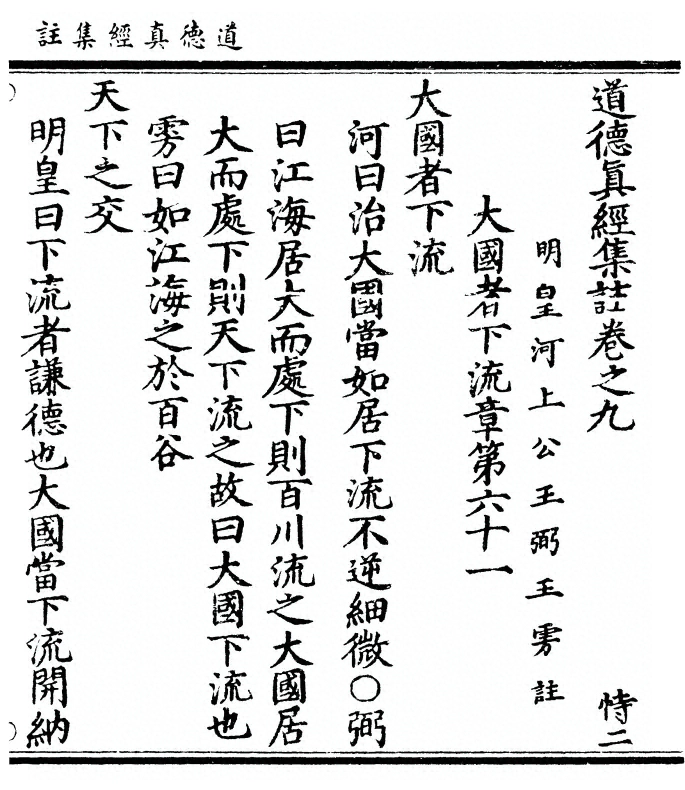 道德真經集註
道德眞經集註卷之九
恃二
明皇河上公王弼王雱註
大國者下流章第六十一
大國者下流
河曰治大國當如居下流不逆細微○弼
曰江海居大而處下則百川流之大國居
大而處下則天下流之故曰大國下流也
雱曰如江海之於百谷
天下之交
明皇曰下流者謙德也大國當下流開納